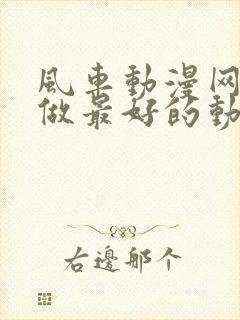 風車動漫网
做最好的動
右邊那个